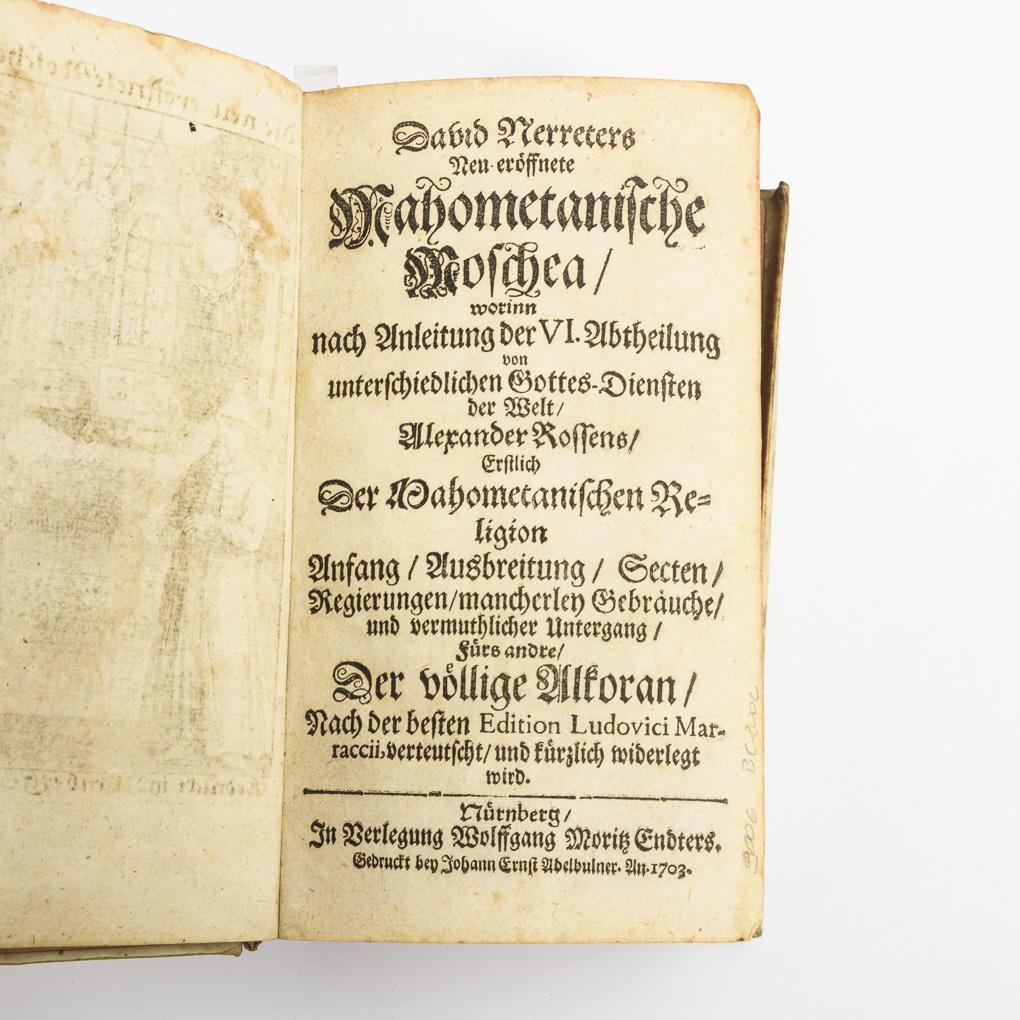 David Nerreters
Neu-eröffnete
Mahometanische
Moschea/
worinn
nach Anleitung der VI. Abtheilung
von
unterschiedlichen Gottes-Diensten
der Welt/
Alexander Rossens/
Erstlich
Der Mahometanischen Re=
ligion
Anfang / Ausbreitung / Secten /
Regierungen / mancherley Gebräuche /
und vermuthlicher Untergang /
Fürs andre /
Der völlige Alkoran /
Nach der besten Edition Ludovici Mar-
raccii, verteutscht / und kürzlich widerlegt
wird.
Nürnberg /
In Verlegung Wolffgang Moritz Endters.
Gedruckt bey Johann Ernst Adelbulner. An. 1703.